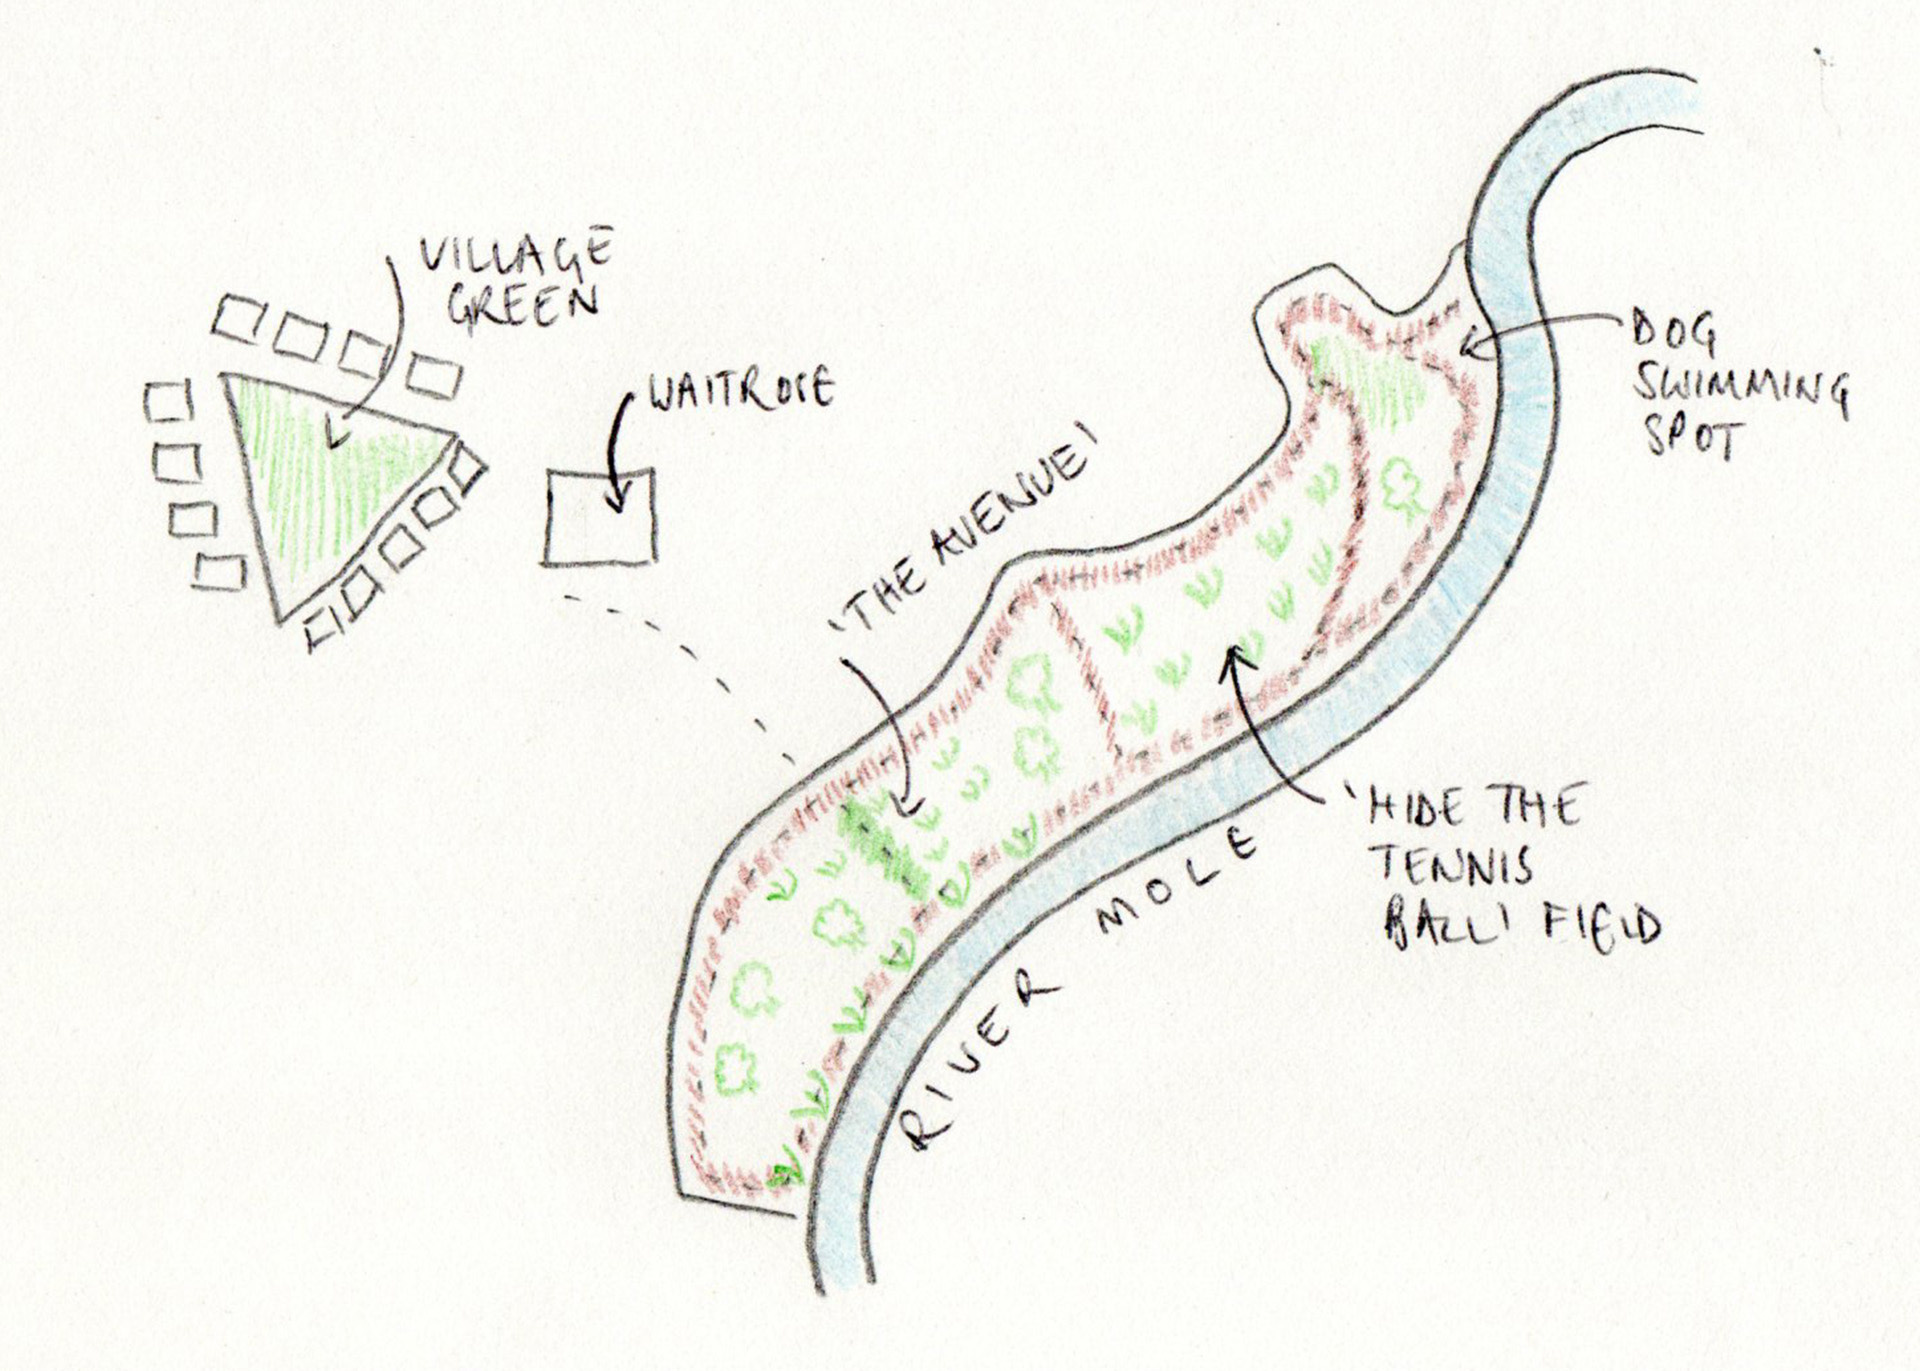 VILLAGE
GREEN
WAITROSE
'THE AVENUE'
DOG
SWIMMING
SPOT
'HIDE THE
TENNIS
BALL' FIELD
RIVER MOLE